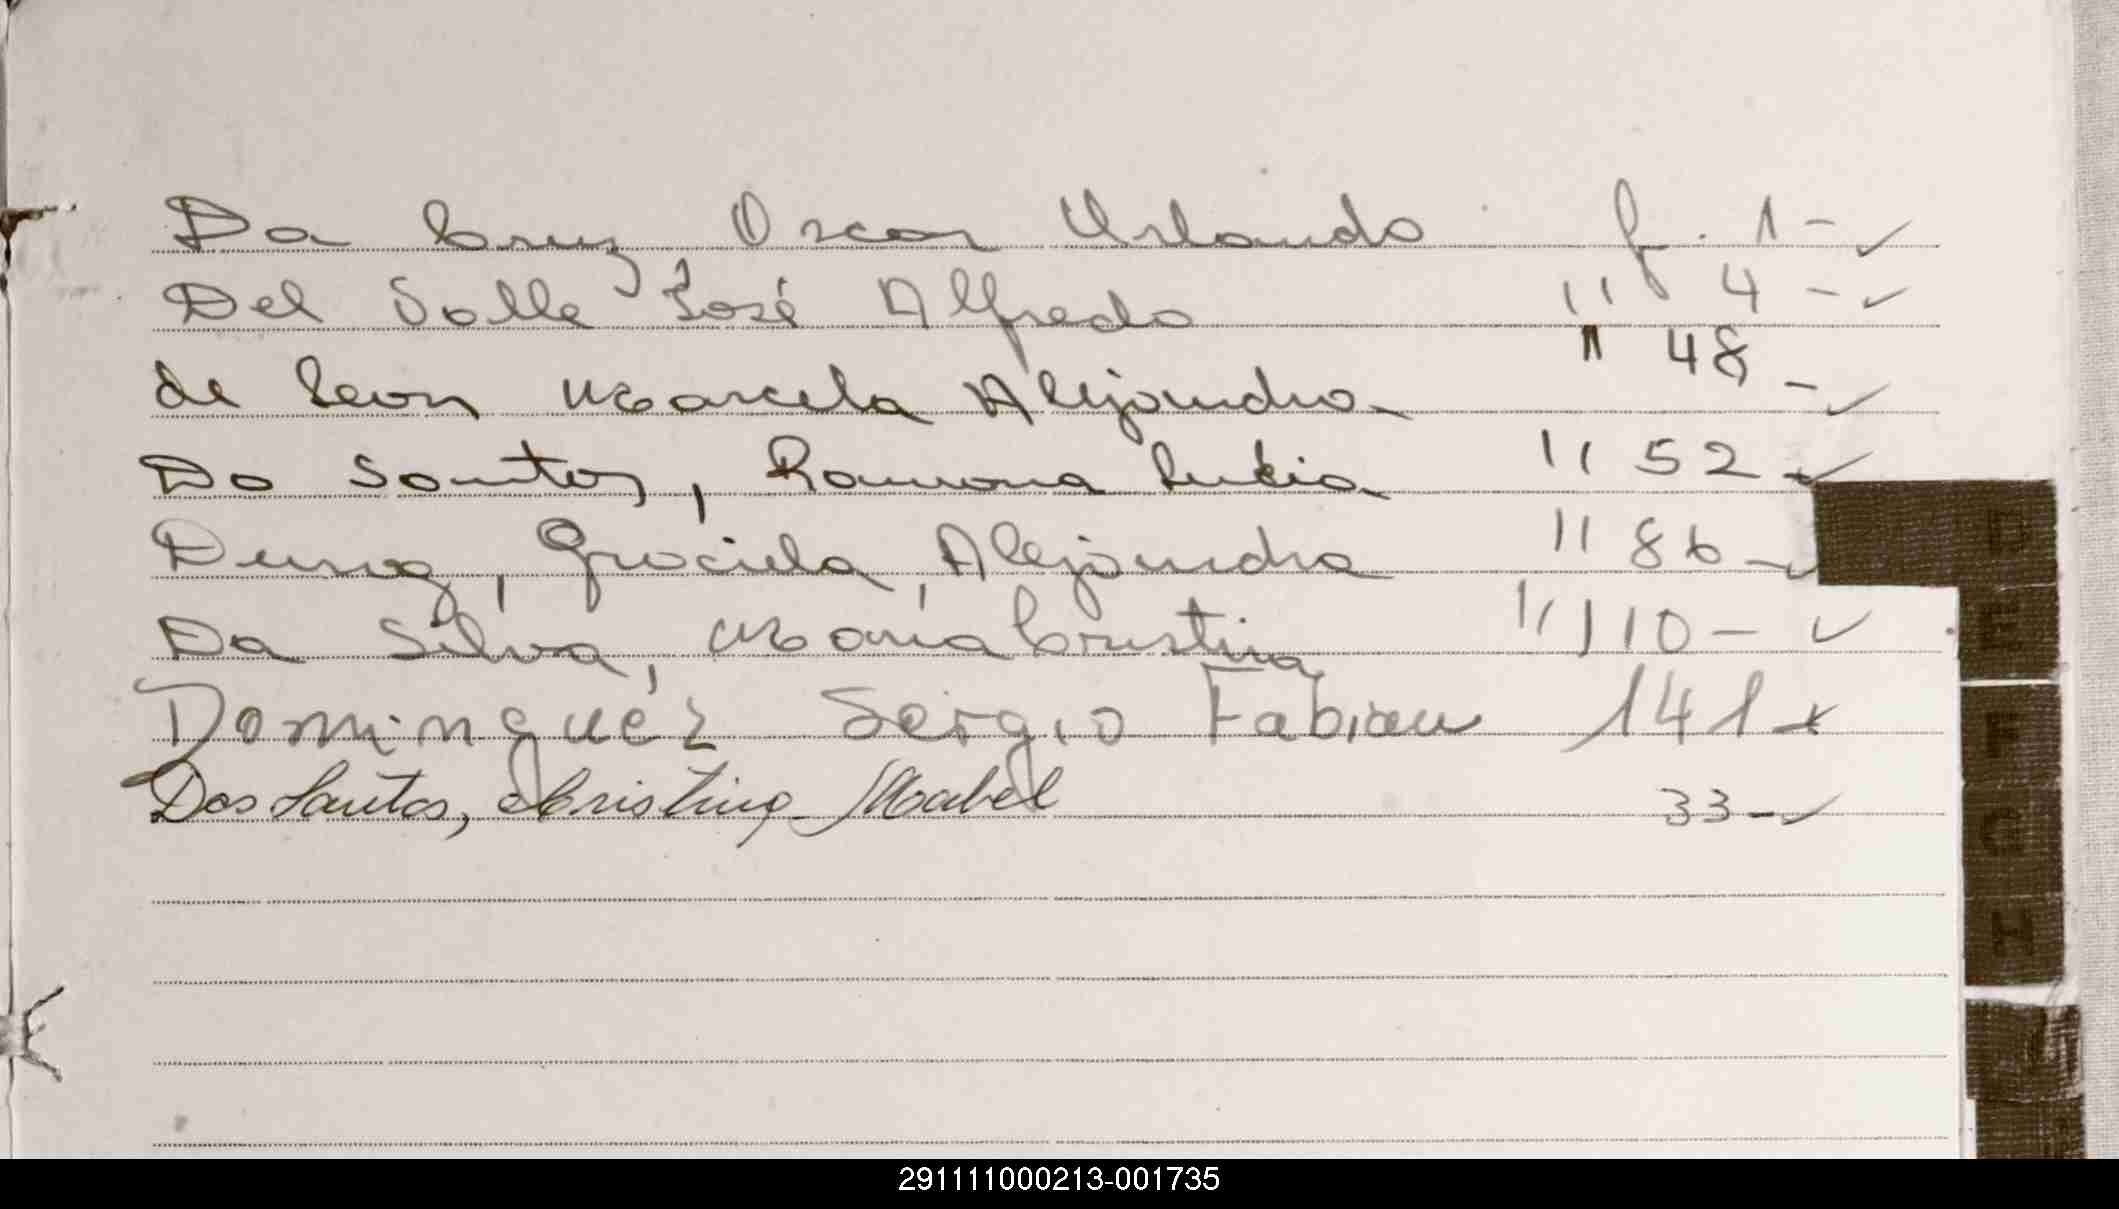 Da Cruz Oscar Orlando f. 1 - ✓
Del Valle José Alfredo " 4 - ✓
de Leon Marcela Alejandra " 48 - ✓
Do Santos, Ramona Lucia " 52 - ✓
Graciela, Alejandra " 86 - ✓
Da Silva, María Cristina " 110 - ✓
Dominguéz Sergio Fabian 141
Dos Santos, Cristina Mabel 33 - ✓
D
E
F
G
H
291111000213-001735